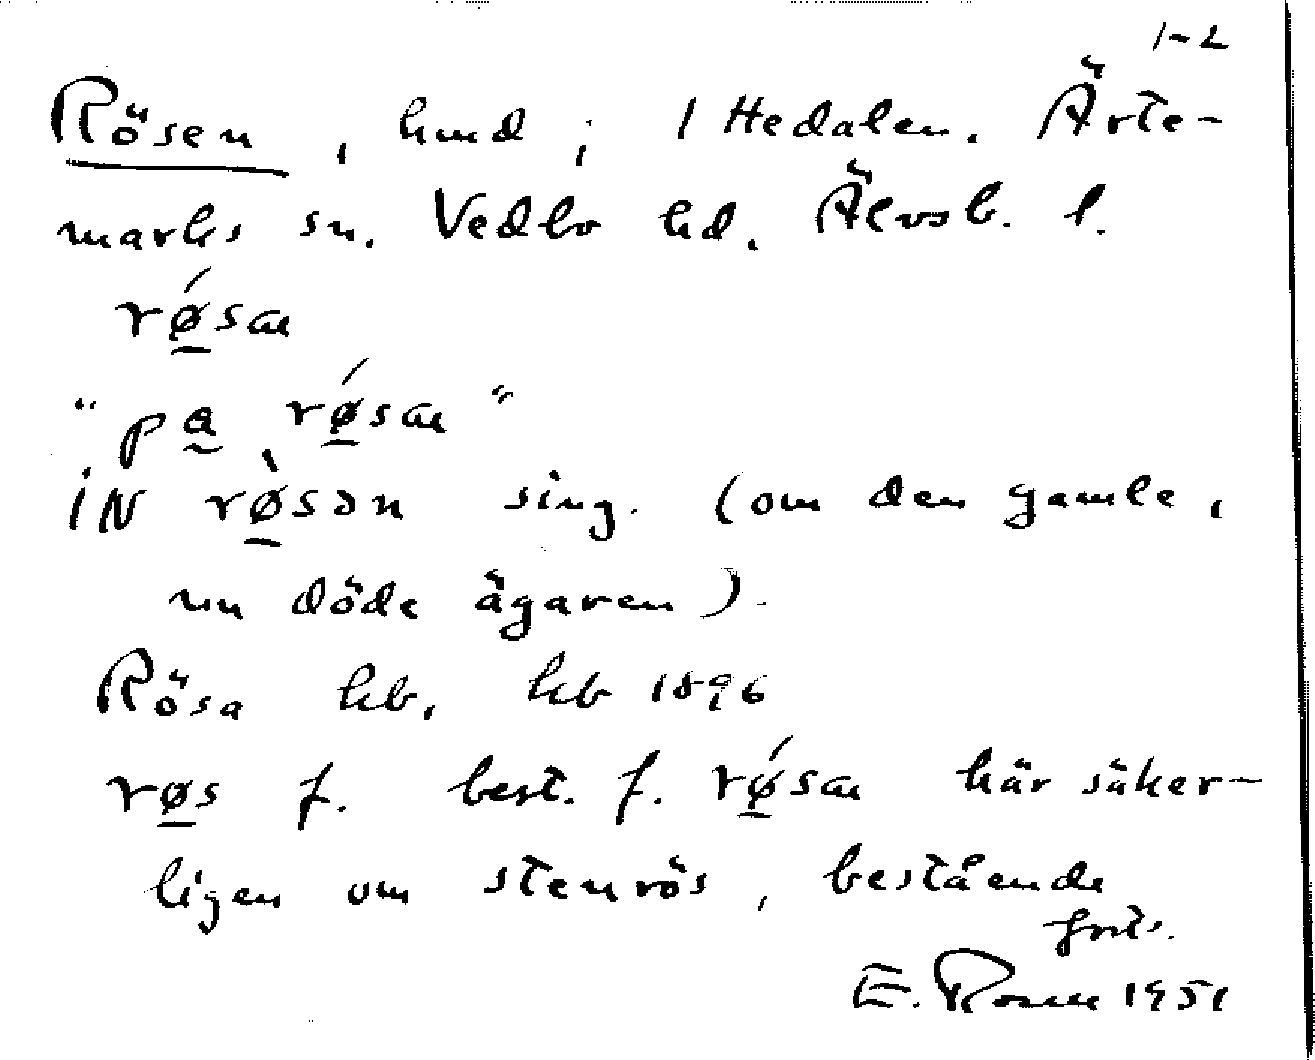 1-2
Rösen, hmd; 1 Hedalen. Ärte-
marks sn. Vedbo hd. Älvsb. l.
rǿsæ
"pa rǿsæ"
iN rø̀sən sing. (om den gamle,
nu döde ägaren).
Rösa hb, kb 1896
røs f. best. f. rǿsæ här säker-
ligen om stenrös, bestående
forts.
E. Rosell 1951